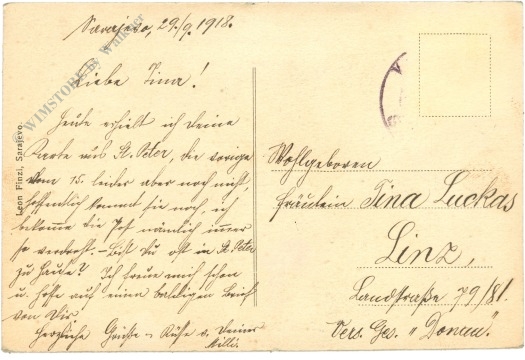 Sarajevo, 29./9. 1918.
Liebe Tina!
Heute erhielt ich Deine
Karte aus St. Peter, die vorige
vom 15. leider aber noch nicht,
hoffentlich kommt sie noch, ich
bekomme die Post nämlich immer
so verdreht. – Bist Du oft in St. Peter
zu Hause? Ich freue mich schon
u. hoffe auf einen baldigen Brief
von Dir.
Herzliche Grüße u. Küße v. Deiner
Milli.
Wohlgeboren
Fräulein Tina Luckas
Linz,
Landstraße 79/81.
Vers. Ges. "Donau".
Leon Finzi, Sarajevo
© WIMSTORE by Walkner